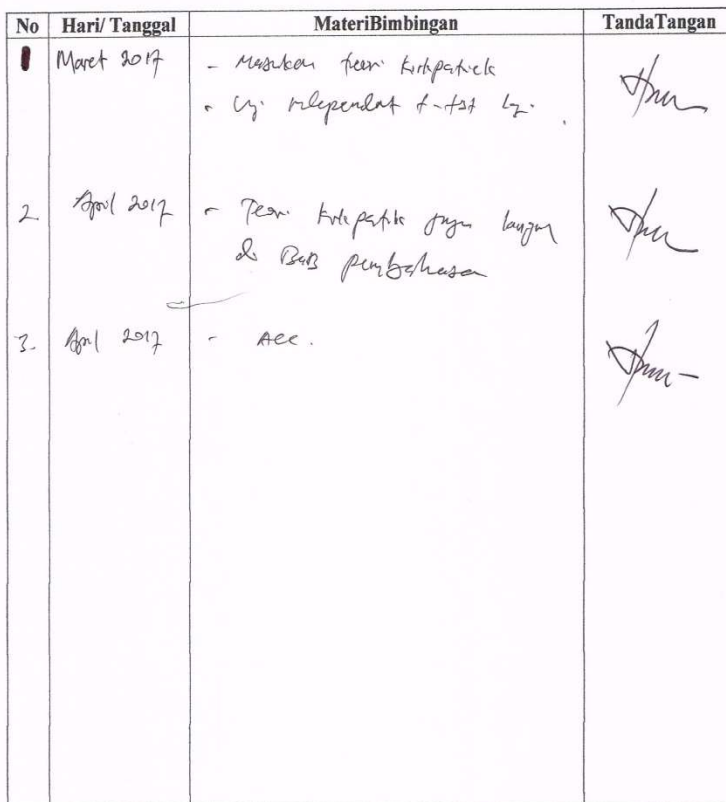 No Hari/ Tanggal MateriBimbingan TandaTangan
1 Maret 2017 - Masukan teori Kirkpatrick
- Uji independent t-test
2. April 2017 - Teori Kirkpatrick jangan langsung
di BaB pembahasan
3. April 2017 - Acc.